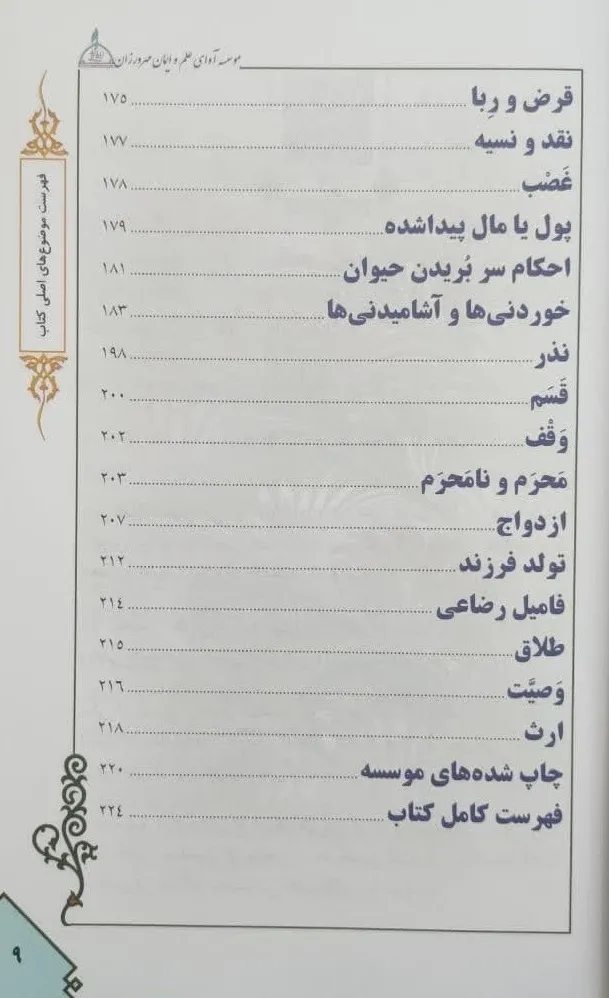 موسسه آوای علم و ایمان مهرورزان
قرض و رِبا ۱۷۵
نقد و نسیه ۱۷۷
غَصْب ۱۷۸
پول یا مال پیداشده ۱۷۹
احکام سر بُریدن حیوان ۱۸۱
خوردنی‌ها و آشامیدنی‌ها ۱۸۳
نذر ۱۹۸
قَسَم ۲۰۰
وَقْف ۲۰۲
مَحرَم و نامَحرَم ۲۰۳
ازدواج ۲۰۷
تولد فرزند ۲۱۲
فامیل رضاعی ۲۱٤
طلاق ۲۱٥
وَصیَّت ۲۱٦
ارث ۲۱۸
چاپ شده‌های موسسه ۲۲۰
فهرست کامل کتاب ۲۲٤
فهرست موضوع‌های اصلی کتاب
۹